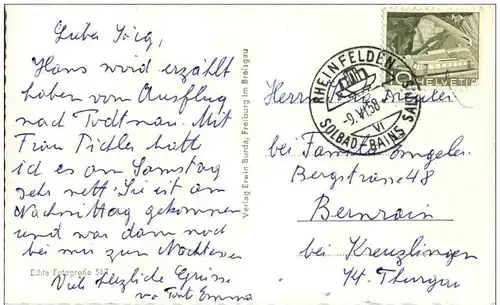 Lieber Jörg,
Hans wird erzählt
haben vom Ausflug
nach Todtnau. Mit
Frau Pichler hatt
ich es am Samstag
sehr nett. Sie ist am
Nachmittag gekommen
und war dann noch
bei mir zum Nachtessen
Viele herzliche Grüsse
von Tante Emma
Echte Fotografie
Verlag Erwin Burda, Freiburg im Breisgau
HELVETIA
10
RHEINFELDEN
-9.VI.58
SOLBAD-BAINS SALINS
Herrn
bei Familie
Bergstrasse 48
Bernrain
bei Kreuzlingen
Kt. Thurgau